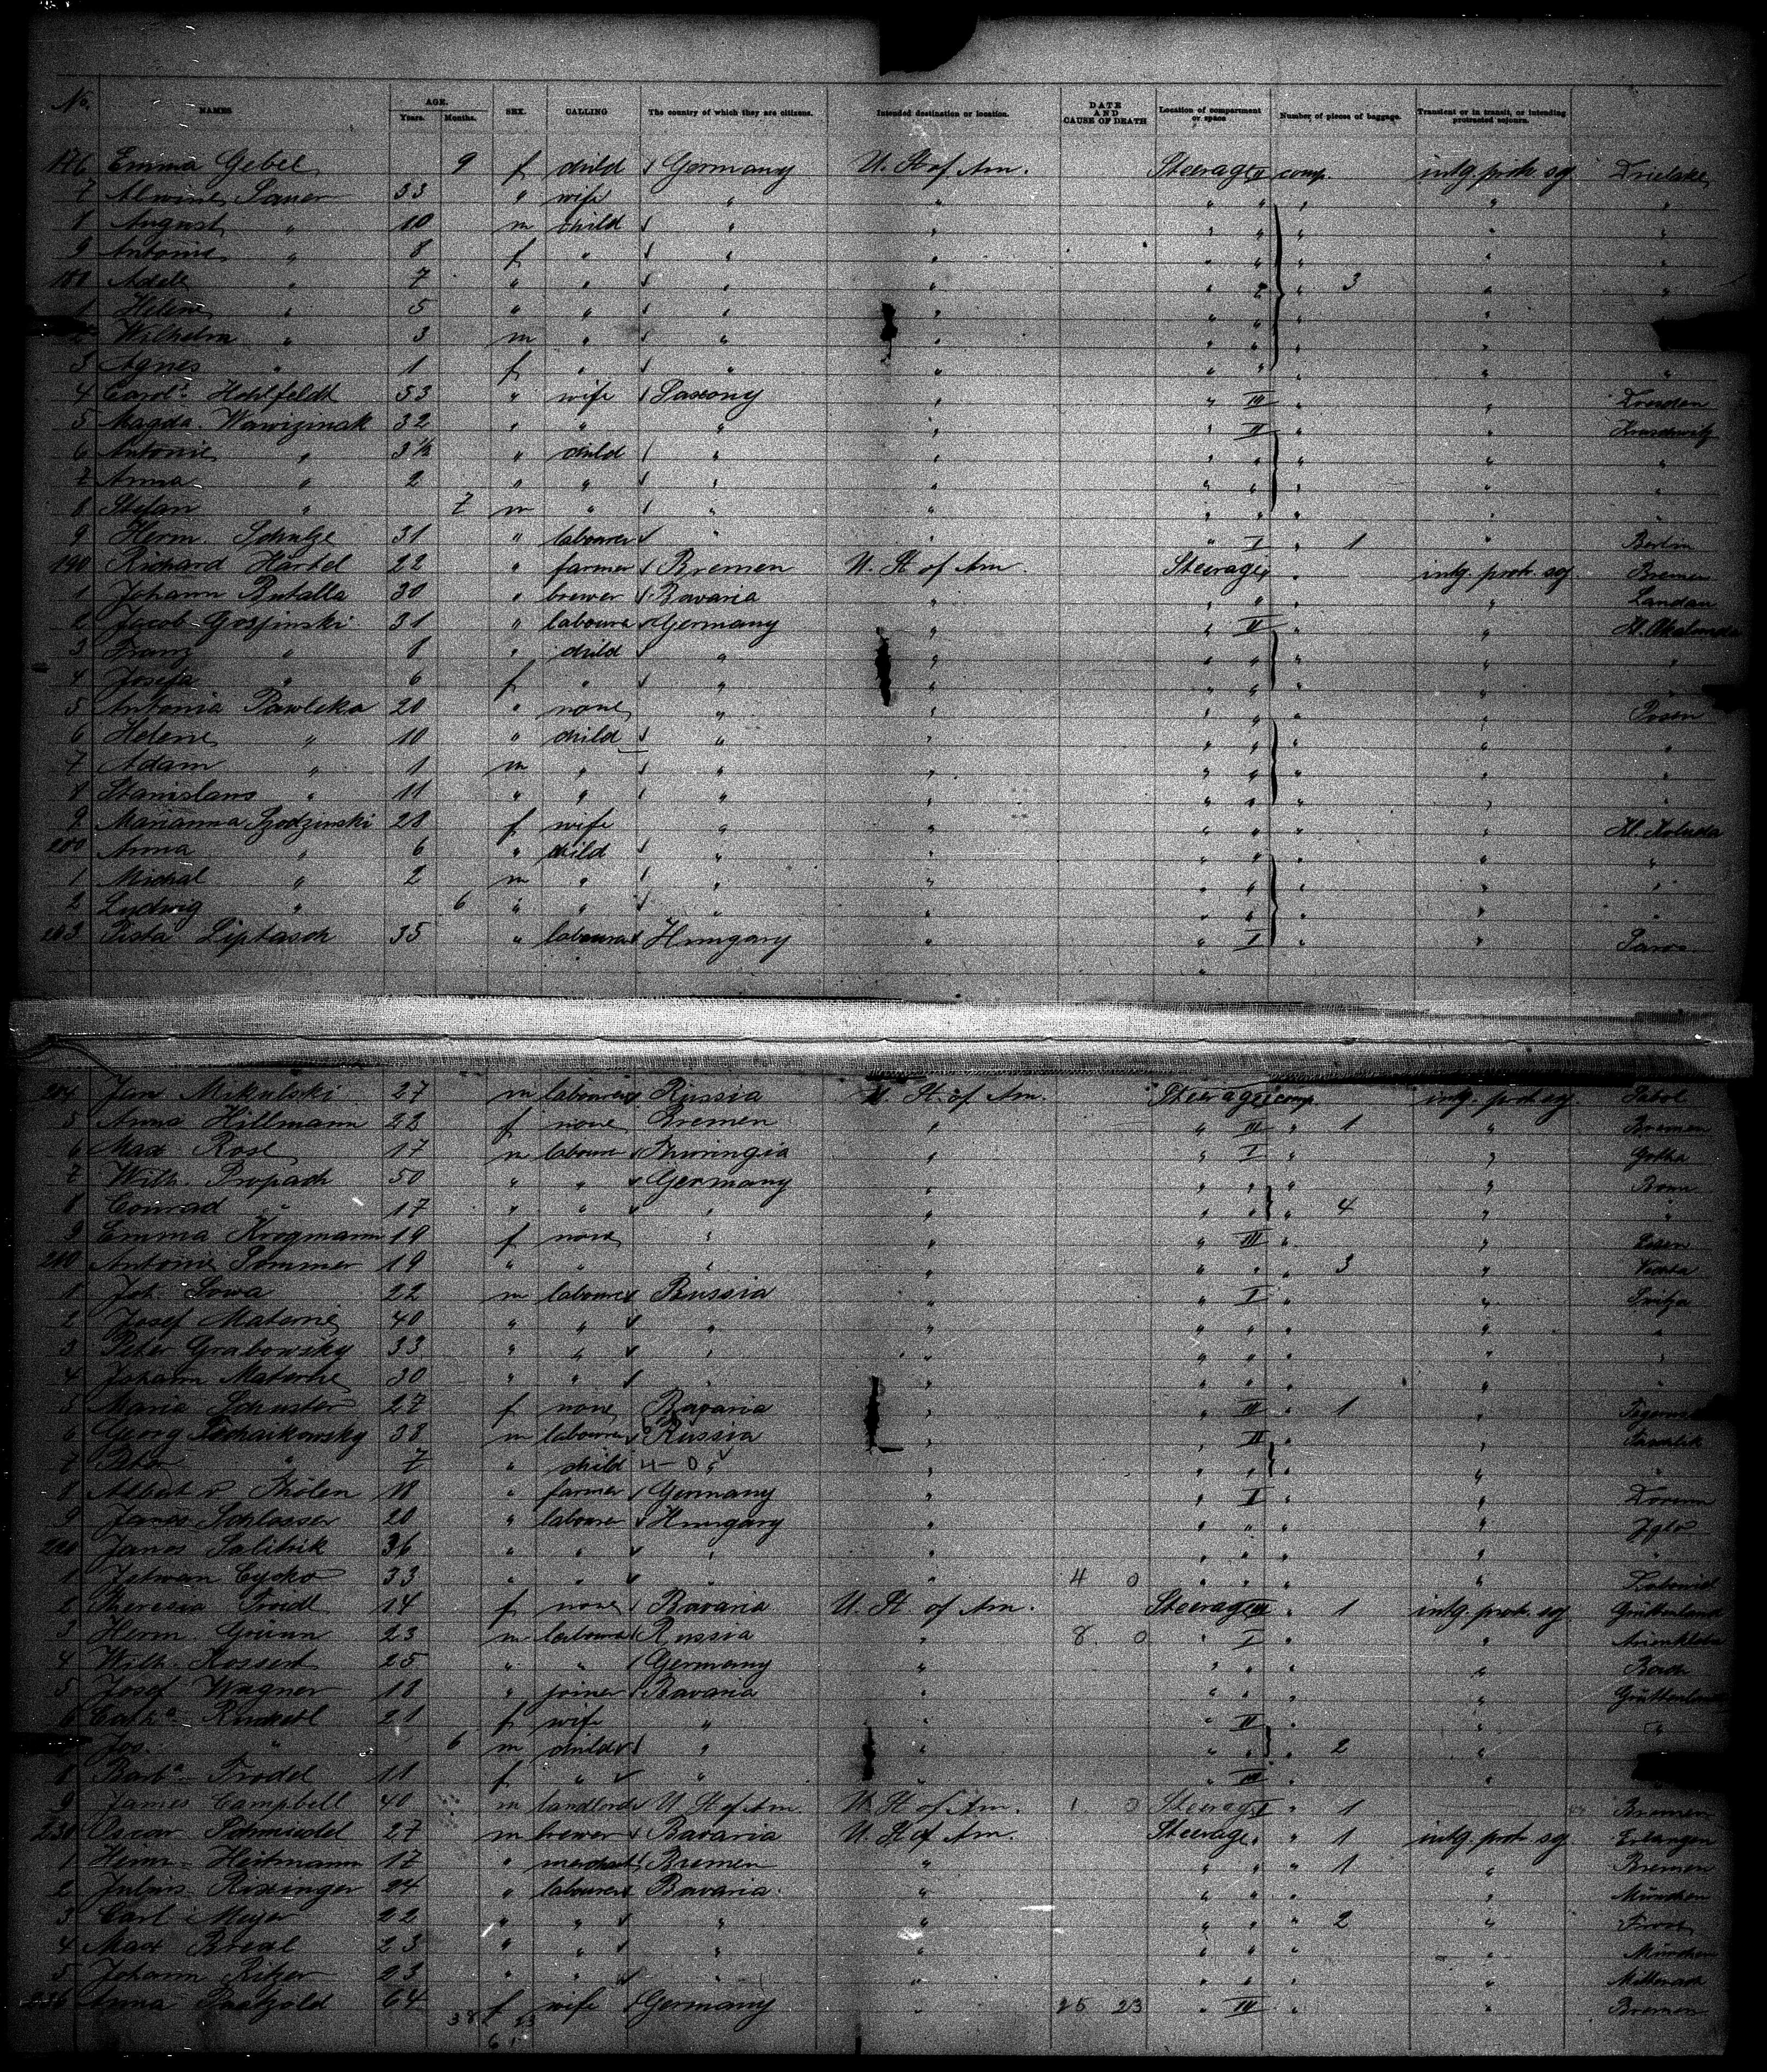 No. NAMES AGE. Years. Months. SEX. CALLING The country of which they are citizens. Intended destination or location. DATE AND CAUSE OF DEATH Location of compartment or space Number of pieces of baggage. Transient or in transit, or intending protracted sojourn.
176 Emma Gebel 9 f child Germany U. St of Am. Steerage II comp. intg. protr. soj Drielake
7 Alwine Sauer 33 " wife " " " " " " "
8 August " 10 m child " " " " " " "
9 Antonie " 8 f " " " " " " " "
180 Adele " 7 " " " " " " " 3 " "
1 Helene " 5 " " " " " " " " "
2 Wilhelm " 3 m " " " " " " "
3 Agnes " 1 f " " " " " " " "
4 Carol. Hohlfeldt 53 " wife Saxony " " III " " Dresden
5 Magda. 32 " " " " " II " "
6 Antonie " 3 1/2 " child " " " " " " "
7 Anna " 2 " " " " " " " " "
8 Stefan " 7 m " " " " " " " "
9 Herm. Schulze 31 " labourer " " " I " 1 " Berlin
190 Richard Härtel 22 " farmer Bremen U. St of Am. Steerage " " intg. protr. soj. Bremen
1 Johann Butalla 30 " brewer Bavaria " " " " " Landau
2 Jacob Gosjinski 31 " laboure Germany " " II " "
3 Franz " 8 " child " " " " " " "
4 Josefa " 6 f " " " " " " " "
5 Antonia Pawleka 20 " none " " " " " " Posen
6 Helene " 10 " child " " " " " " "
7 Adam " 1 m " " " " " " " "
8 Stanislaus " 11 " " " " " " " " "
9 Marianna 28 f wife " " " " " " Kl. Koluda
200 Anna " 6 " child " " " " " " "
1 Michal " 2 m " " " " " " " "
2 Ludwig " 6 " " " " " " " " "
203 Pista Liptasch 35 " labourer Hungary " " I " " Saros
204 Jan Mikulski 27 m labourer Russia U. St of Am. Steerage I comp intg. prot soj
5 Anna Hillmann 22 f none Bremen " " III " 1 " Bremen
6 Max Rose 17 m laboure Thuringia " " I " " Gotha
7 Wilh. Propach 50 " " Germany " " " " " Bonn
8 Conrad " 17 " " " " " " " 4 " "
9 Emma Krogmann 19 f none " " " III " " Essen
210 Antonie Sommer 19 " " " " " " " 3 " Vechta
1 Joh. Sowa 22 m labourer Russia " " I " "
2 Josef Materne 40 " " " " " " " " "
3 Peter Grabowsky 33 " " " " " " " " "
4 Johann Materne 30 " " " " " " " " "
5 Maria Schuster 27 f none Bavaria " " III " 1 "
6 Georg Tschaikowsky 38 m labourer Russia " " II "
7 Peter " 7 " child 4-0 " " " " " " "
8 Albert v Thölen 18 " farmer Germany " " I " "
9 Janos Schlosser 20 " labourer Hungary " " " " " Iglo
220 Janos Salitrik 36 " " " " " " " " "
1 Istwan Cysko 33 " " " " 4 0 " " " "
2 Theresia Troidl 14 f none Bavaria U. St of Am. Steerage III " 1 intg. protr. soj
3 Herm. 23 m laboure Russia " 8 0 " I " "
4 Wilh. Kossert 25 " " Germany " " " " "
5 Josef Wagner 18 " joiner Bavaria " " " " "
6 21 f wife " " " II " " "
Jos. " 6 m child " " " " " 2 "
8 Barba Trodel 11 f " " " " III " "
9 James Campbell 40 m landlord U. St of Am. U. St of Am. 1 0 Steerage I " 1 Bremen
230 Oscar Schmiedel 27 m brewer Bavaria U. St of Am. Steerage " " 1 intg. protr. soj Erlangen
1 Herm. Heitmann 17 " merchant Bremen " " " " 1 " Bremen
2 Julius Rixinger 24 " labourer Bavaria. " " " " " München
3 Carl Meyer 22 " " " " " " " 2 "
4 Max Bredl 23 " " " " " " " " München
5 Johann Ritzer 23 " " " " " " " "
236 Anna Paetzold 64 f wife Germany " 25 23 " III " " Bremen
38 23
6